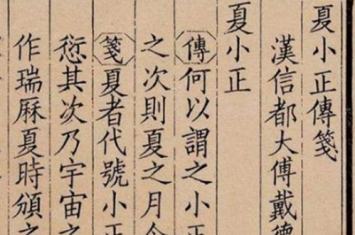 夏小正傳箋
漢信都大傅戴德
夏小正
傳何以謂之小正
之次則夏之月令
箋夏者代號小正
愆其次乃宇宙之
作瑞厤夏時頒之